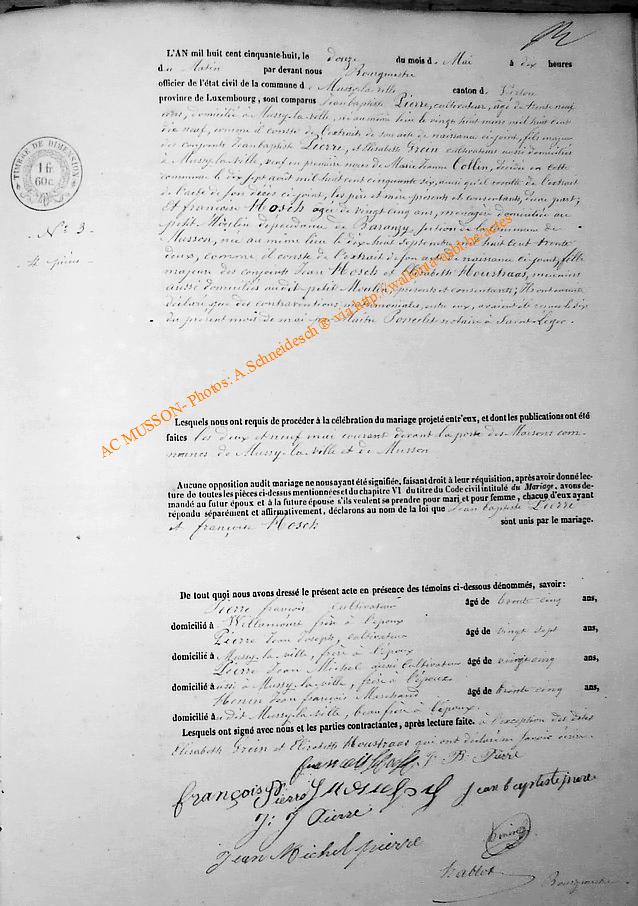 L'AN mil huit cent cinquante-huit, le douze du mois de Mai à dix heures
du Matin par devant nous Bourgmestre
officier de l'état civil de la commune de Mussy-la-ville canton de Virton
province de Luxembourg, sont comparus Jean baptiste Pierre, cultivateur, âgé de trente neuf
ans, domicilié à Mussy-la-ville, né au même lieu le vingt huit mars mil huit cent
dix neuf, comme il conste de l'extrait de son acte de naissance ci-joint, fils majeur
des conjoints Jean baptiste Pierre, et Elisabeth Grein cultivateurs aussi domiciliés
à Mussy-la-ville, veuf en premières noces de Marie Jeanne Collin, décédée en cette
commune le dix sept août mil huit cent cinquante six, ainsi qu'il conste de l'extrait
de l'acte de son décès ci-joint, les père et mère présents et consentants, d'une part;
Et françoise Hosch âgée de vingt cinq ans, ménagère domiciliée au
petit Moulin dépendance de Baranzy, section de la commune de
Musson, née au même lieu le dix huit septembre mil huit cent trente
deux, comme il conste de l'extrait de son acte de naissance ci-joint, fille
majeure des conjoints Jean Hosch et Elisabeth Houstraas, meuniers
aussi domiciliés audit petit Moulin, présents et consentants; Ils ont ensuite
déclaré que des conventions matrimoniales, entre eux, avaient été reçues le six
du présent mois de mai par Maître Poncelet notaire à Saint Léger.
TIMBRE DE DIMENSION
1 fr
60 c.
N° 3
4 pièces
AC MUSSON- Photos: A.Schneidesch ® via http://wallonia-asbl.be/actes
Lesquels nous ont requis de procéder à la célébration du mariage projeté entr'eux, et dont les publications ont été
faites les deux et neuf mai courant devant la porte des Maisons com-
munes de Mussy-la-ville et de Musson
Aucune opposition audit mariage ne nous ayant été signifiée, faisant droit à leur réquisition, après avoir donné lec-
ture de toutes les pièces ci-dessus mentionnées et du chapitre VI du titre du Code civil intitulé du Mariage, avons de-
mandé au futur époux et à la future épouse s'ils veulent se prendre pour mari et pour femme, chacun d'eux ayant
répondu séparément et affirmativement, déclarons au nom de la loi que Jean baptiste Pierre
et françoise Hosch sont unis par le mariage.
De tout quoi nous avons dressé le présent acte en présence des témoins ci-dessous dénommés, savoir:
Pierre françois cultivateur âgé de trente cinq ans,
domicilié à Willancourt frère à l'époux
Pierre Jean Joseph, cultivateur âgé de vingt sept ans,
domicilié à Mussy-la-ville, frère à l'époux
Pierre Jean Michel aussi cultivateur âgé de vingt cinq ans,
domicilié aussi à Mussy-la-ville, frère à l'époux
Jean françois Marchand âgé de trente cinq ans,
domicilié au dit Mussy-la-ville, beau frère à l'époux.
Lesquels ont signé avec nous et les parties contractantes, après lecture faite. à l'exception des dites
Elisabeth Grein et Elisabeth Houstraas qui ont déclaré ne savoir écrire.
J. B. Pierre
françois Pierre
jean baptiste pierre
J: J Pierre
Jean Michel pierre
Bourgmestre